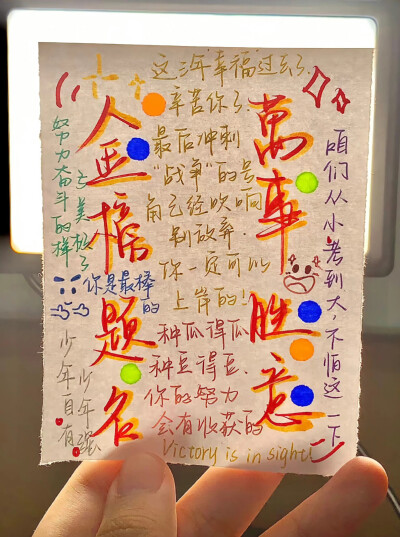 萬事胜意
金榜题名
这三年"幸福"过去了.
辛苦你了.
最后冲刺
"战争"的号
角已经吹响
别放弃.
你一定可以
上岸的!
种瓜得瓜
种豆得豆.
你的努力
会有收获的
Victory is in sight!
咱们从小考到大，不怕这一下
努力奋斗的样
子美极了
你是最棒
的
少年自有
少年强